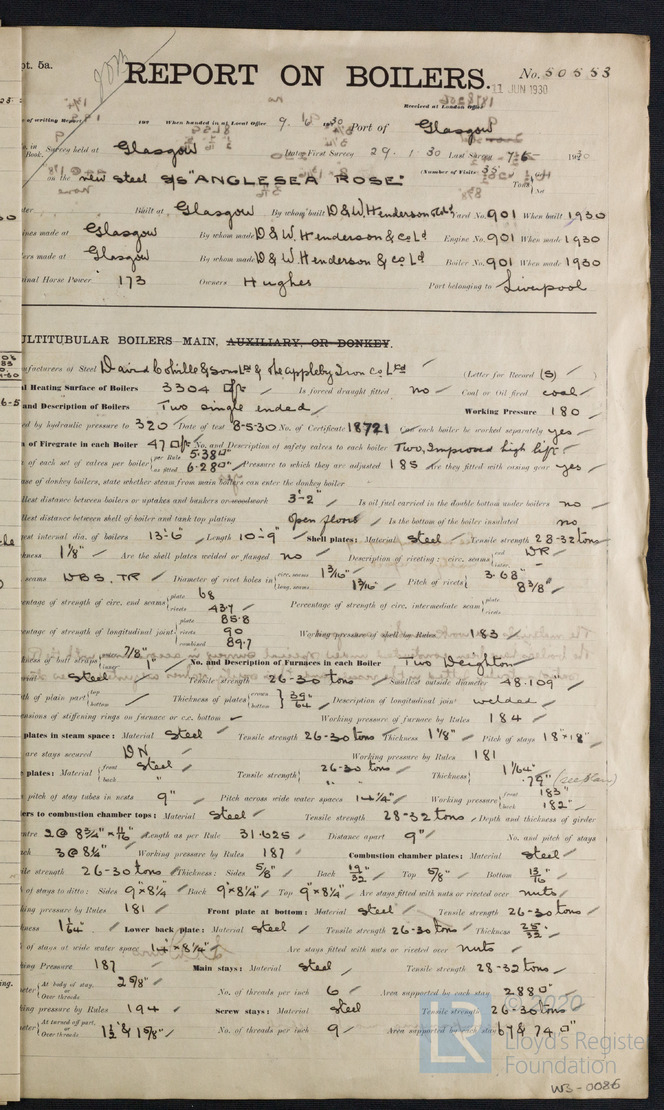 pt. 5a.
REPORT ON BOILERS.
No. 50553
11 JUN 1930
Received at London Office
of writing Report 192 When handed in at Local Office 9. 6 1930 Port of Glasgow
Book. Survey held at Glasgow Date, First Survey 29. 1. 30 Last Survey 7-6- 1930
on the new steel S/S "ANGLESEA ROSE" (Number of Visits 35) Tons
Built at Glasgow By whom built D & W. Henderson & Co Ld Yard No. 901 When built 1930
ines made at Glasgow By whom made D & W. Henderson & Co Ld Engine No. 901 When made 1930
ers made at Glasgow By whom made D & W. Henderson & Co Ld Boiler No. 901 When made 1930
inal Horse Power 173 Owners Hughes Port belonging to Liverpool
ULTITUBULAR BOILERS—MAIN, AUXILIARY, OR DONKEY.
nufacturers of Steel David Colville & Sons Ltd & The Appleby Iron Co Ltd (Letter for Record (S) )
al Heating Surface of Boilers 3304 □ft Is forced draught fitted no Coal or Oil fired coal
and Description of Boilers Two single ended Working Pressure 180
ed by hydraulic pressure to 320 Date of test 8-5-30 No. of Certificate 18721 Can each boiler be worked separately yes
a of Firegrate in each Boiler 47 □ft No. and Description of safety valves to each boiler Two, Improved high lift
a of each set of valves per boiler per Rule 5.38□" as fitted 6.28□" Pressure to which they are adjusted 185 Are they fitted with easing gear yes
ase of donkey boilers, state whether steam from main boilers can enter the donkey boiler
llest distance between boilers or uptakes and bunkers or woodwork 3'-2" Is oil fuel carried in the double bottom under boilers no
llest distance between shell of boiler and tank top plating open floors Is the bottom of the boiler insulated no
est internal dia. of boilers 13'-6" Length 10'-9" Shell plates: Material Steel Tensile strength 28-32 tons
kness 1 1/8" Are the shell plates welded or flanged no Description of riveting: circ. seams end DR
seams DBS. TR Diameter of rivet holes in circ. seams 1 3/16" long. seams 1 3/16" Pitch of rivets 3.68" 8 3/8"
entage of strength of circ. end seams plate 68 rivets 43.7 Percentage of strength of circ. intermediate seam plate rivets
entage of strength of longitudinal joint plate 85.8 rivets 90 combined 89.7 Working pressure of shell by Rules 183
kness of butt straps outer 7/8" inner 1" No. and Description of Furnaces in each Boiler Two Deighton
rial Steel Tensile strength 26-30 tons Smallest outside diameter 48.109"
th of plain part top bottom Thickness of plates crown bottom 39/64" Description of longitudinal joint welded
ensions of stiffening rings on furnace or c.c. bottom Working pressure of furnace by Rules 184
plates in steam space: Material Steel Tensile strength 26-30 tons Thickness 1 1/8" Pitch of stays 18" x 18"
are stays secured DN Working pressure by Rules 181
plates: Material front Steel back " Tensile strength 26-30 tons " " Thickness 1 1/64" .79" (see plan)
pitch of stay tubes in nests 9" Pitch across wide water spaces 14 1/4" Working pressure front 183" back 182"
ers to combustion chamber tops: Material Steel Tensile strength 28-32 tons Depth and thickness of girder
ntre 2 @ 8 3/4" x 11/16" Length as per Rule 31.625 Distance apart 9" No. and pitch of stays
ch 3 @ 8 1/4" Working pressure by Rules 187 Combustion chamber plates: Material Steel
ile strength 26-30 tons Thickness: Sides 5/8" Back 19/32" Top 5/8" Bottom 13/16"
h of stays to ditto: Sides 9" x 8 1/4" Back 9" x 8 1/4" Top 9" x 8 1/4" Are stays fitted with nuts or riveted over nuts
king pressure by Rules 181 Front plate at bottom: Material Steel Tensile strength 26-30 tons
kness 1 1/64" Lower back plate: Material Steel Tensile strength 26-30 tons Thickness 25/32"
of stays at wide water space 14" x 8 1/4" Are stays fitted with nuts or riveted over nuts
king Pressure 187 Main stays: Material Steel Tensile strength 28-32 tons
eter At body of stay, or Over threads 2 5/8" No. of threads per inch 6 Area supported by each stay 288□"
king pressure by Rules 194 Screw stays: Material Steel Tensile strength 26-30 tons
eter At turned off part, or Over threads 1 1/2" & 1 5/8" No. of threads per inch 9 Area supported by each stay 67 & 74□"
© 2020
LR
Lloyd's Register
Foundation
WB-0086